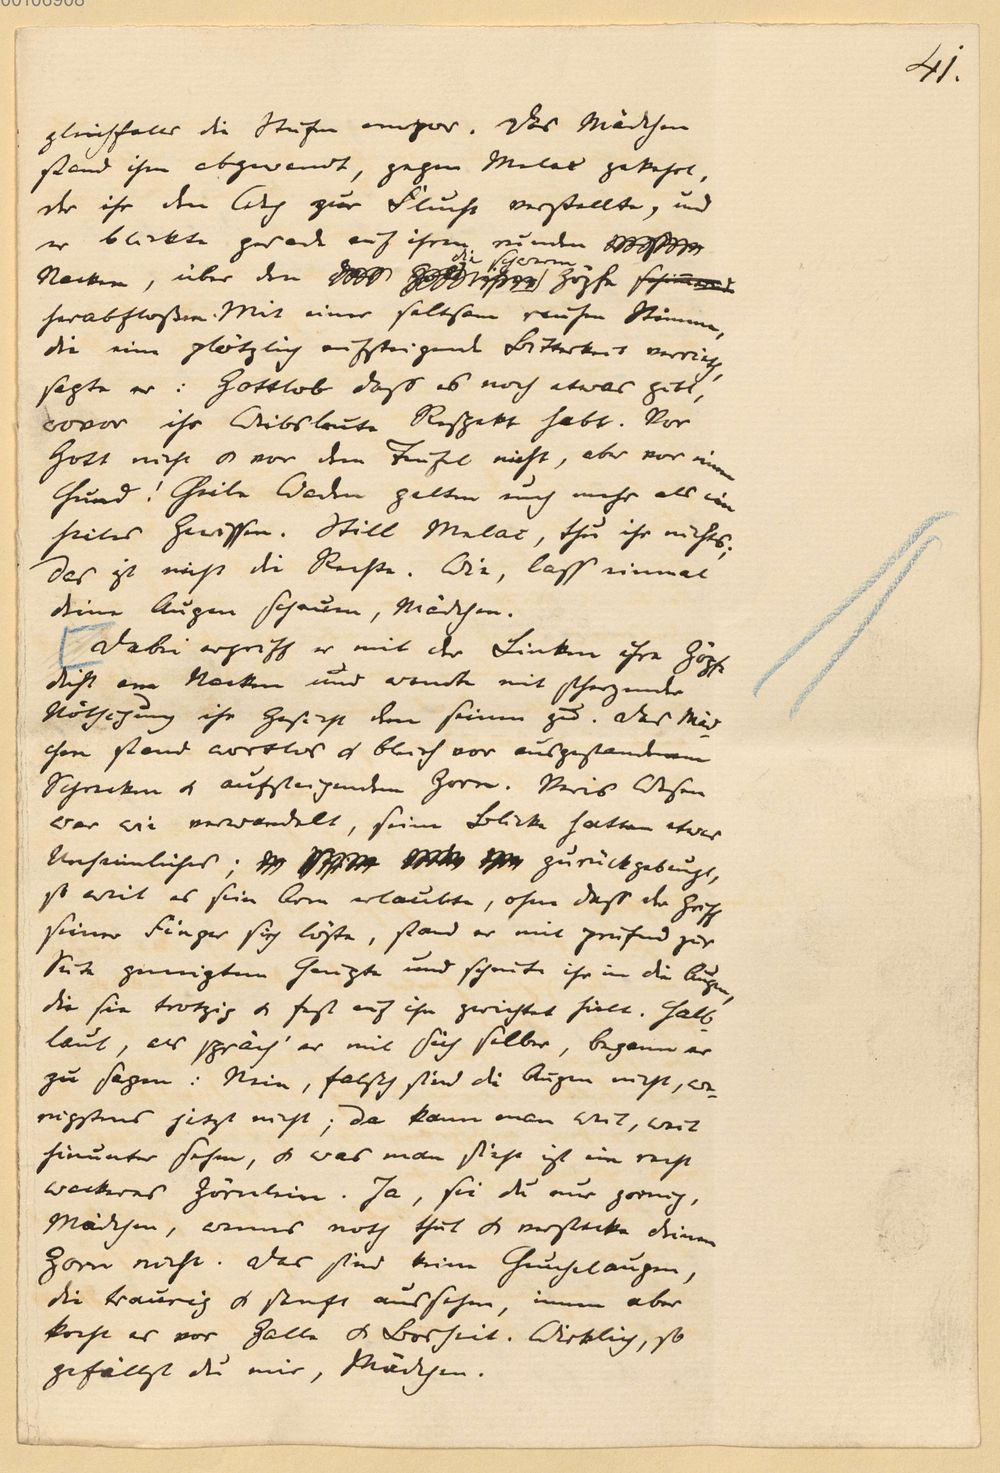 00106908
41.
gleichfalls die Stufen empor. Das Mädchen
stand ihm abgewandt, gegen Melac gekehrt,
der ihr den Weg zur Flucht verstellte, und
er blickte gerade auf ihren runden
die schweren
Nacken, über den Zöpfe
herabflossen. Mit einer seltsam rauhen Stimme,
die eine plötzlich aufsteigende Bitterkeit verrieth,
sagte er: Gottlob dass es noch etwas gibt,
wovor ihr Weibsleute Respekt habt. Vor
Gott nicht & vor dem Teufel nicht, aber vor einem
Hund! Heile Waden gelten euch mehr als ein
heiles Gewissen. Still Melac, thu ihr nichts;
das ist nicht die Rechte. Wie, lass einmal
deine Augen schauen, Mädchen.
Dabei ergriff er mit der Linken ihre Zöpfe
dicht am Nacken und wandte mit scherzender
Nöthigung ihr Gesicht dem seinen zu. Das Mäd-
chen stand wortlos & bleich vor ausgestandenem
Schrecken & aufsteigendem Zorn. Veris Wesen
war wie verwandelt, seine Blicke hatten etwas
Unheimliches; zurückgebeugt,
so weit es sein Arm erlaubte, ohne dass der Griff
seiner Finger sich löste, stand er mit prüfend zur
Seite geneigtem Haupte und schaute ihr in die Augen,
die sie trotzig & fest auf ihn gerichtet hielt. Halb-
laut, als spräch' er mit sich selber, begann er
zu sagen: Nein, falsch sind die Augen nicht, we-
nigstens jetzt nicht; da kann man weit, weit
hinunter sehen, & was man sieht ist ein recht
wackeres Zörnlein. Ja, sei du nur zornig,
Mädchen, wenns noth thut & verstecke deinen
Zorn nicht. Das sind keine Heuchelaugen,
die traurig & sanft aussehen, innen aber
kocht es vor Galle & Bosheit. Wirklich, so
gefällst du mir, Mädchen.